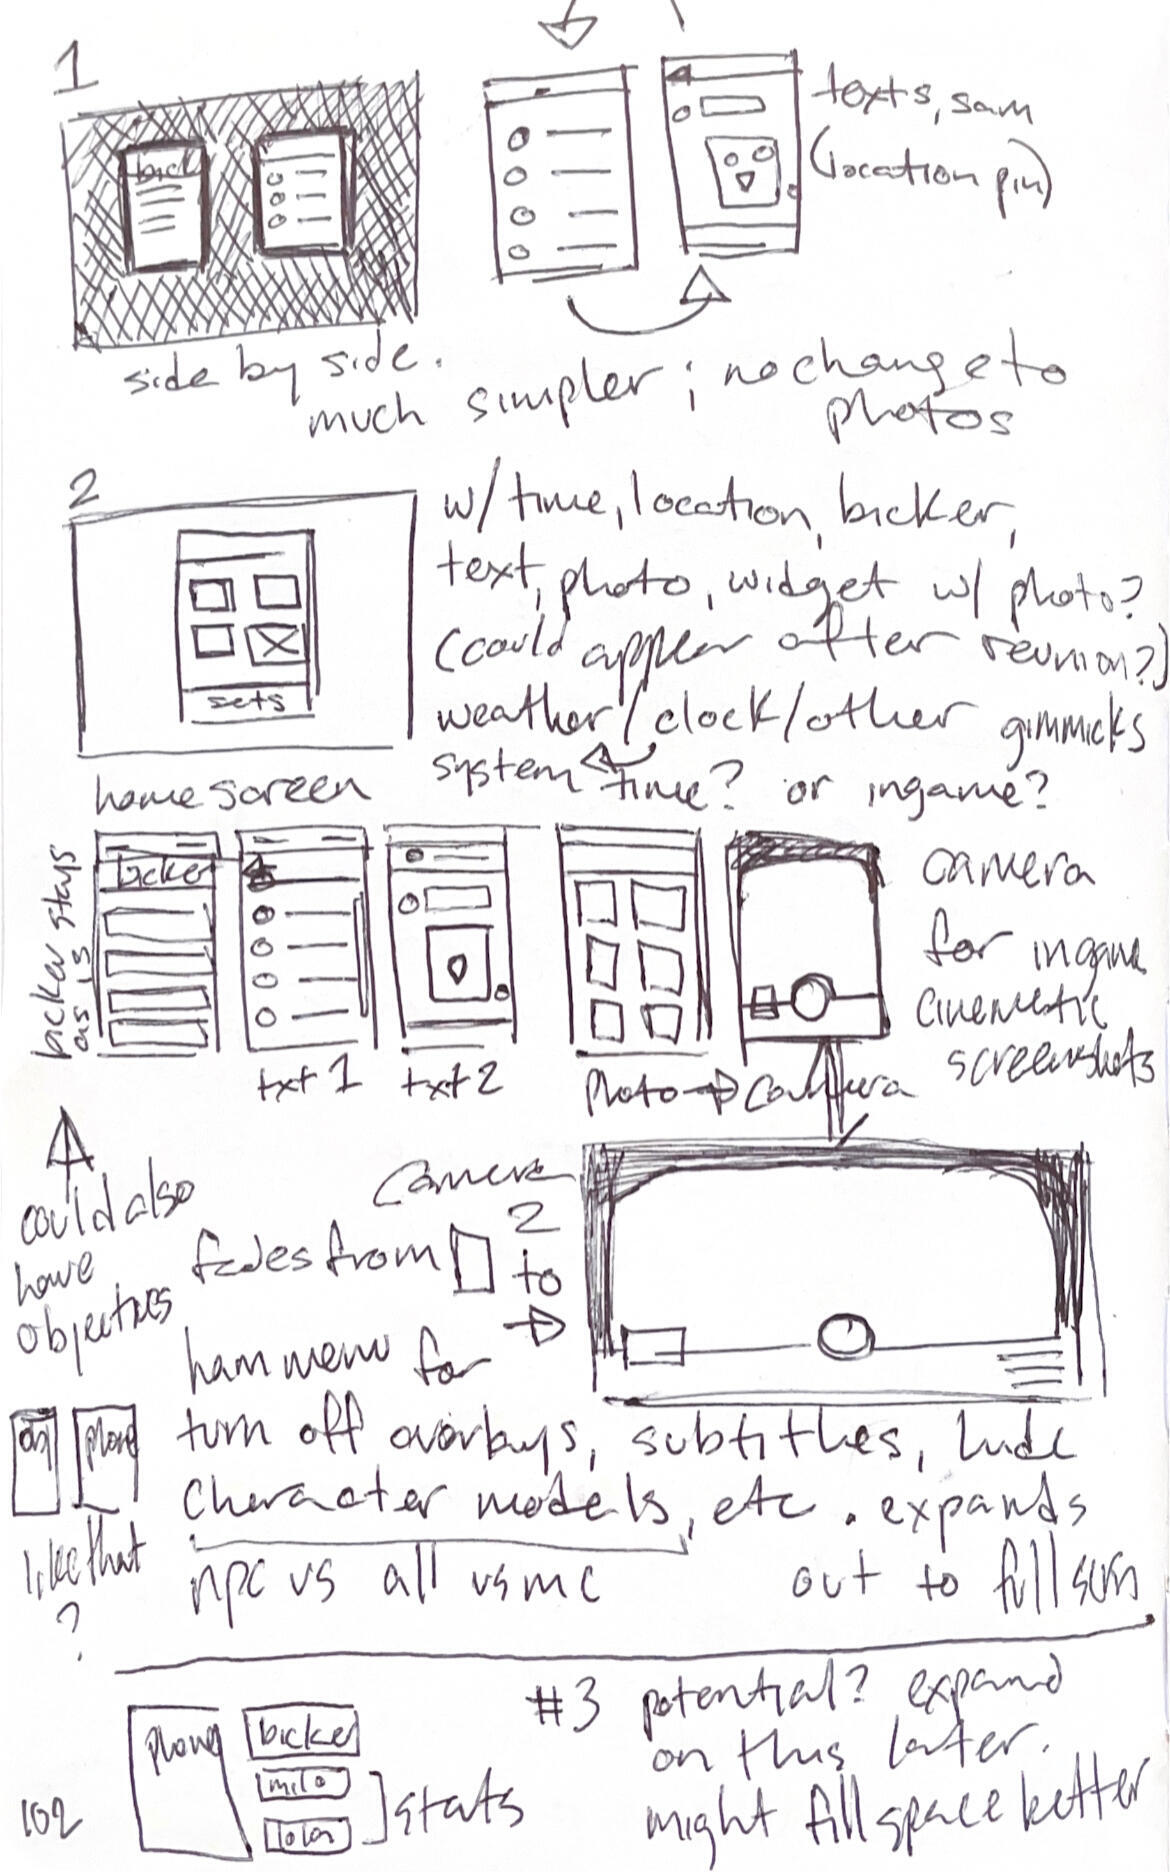 1
bick
texts, sam
(location pin)
side by side.
much simpler; no change to
photos
2
w/ time, location, bicker,
text, photo, widget w/ photo?
(could appear after reunion?)
weather/clock/other gimmicks
system time? or ingame?
sets
home screen
bicker stays
as is
bicker
txt 1
txt 2
photo → camera
camera
for ingame
cinematic
screenshots
could also
have
objectives
camera
fades from 2
to
ham menu for
turn off overlays, subtitles, hide
character models, etc. expands
npc vs all vs mc
out to full scrn
obj
phone
like that
?
phone
bicker
milo
stats
#3 potential? expand
on this later.
might fill space better
102